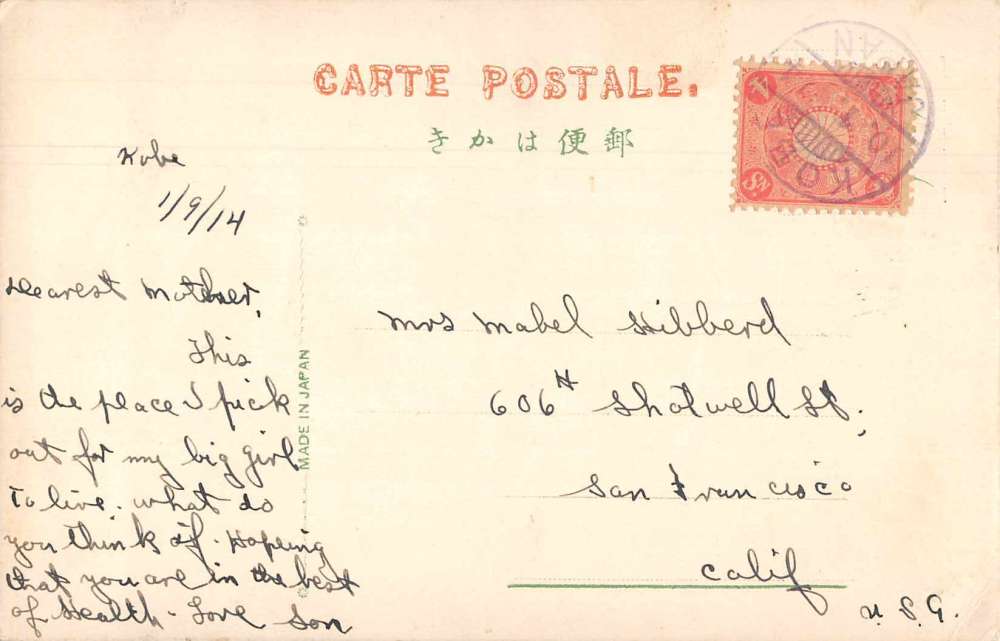 CARTE POSTALE.
きかは便郵
KOBE
4
Kobe
1/9/14
Dearest Mother,
This
is the place I pick
out for my big girl
To live. what do
you think of. Hopeing
that you are in the best
of Health - Love Son
MADE IN JAPAN
Mrs Mabel Hibberd
606 Shotwell St,
San Francisco
Calif
U.S.A.